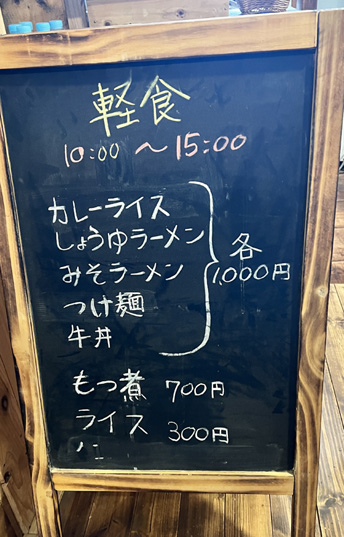 軽食
10:00 〜 15:00
カレーライス
しょうゆラーメン
みそラーメン
つけ麺
牛丼
各
1,000円
もつ煮 700円
ライス 300円